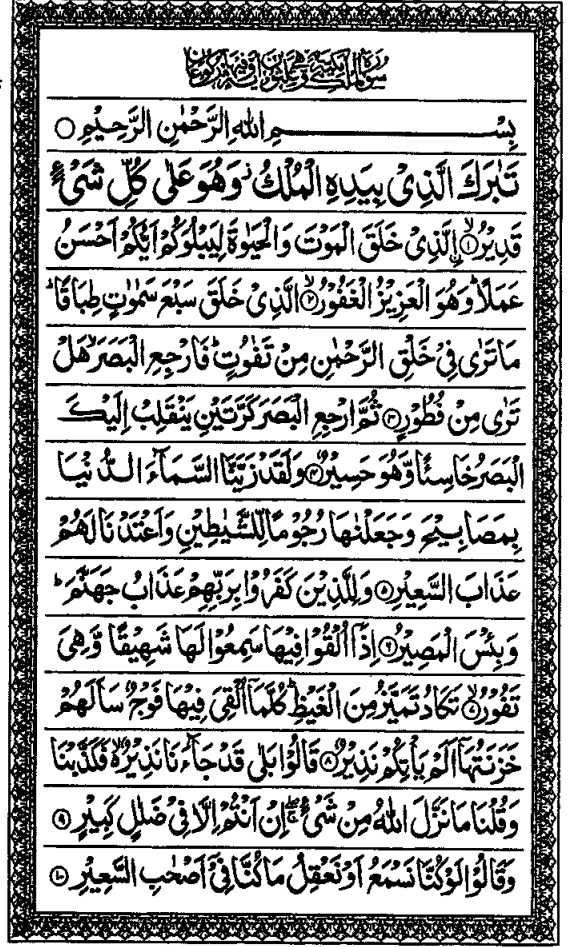 سُوْرَةُ الْمُلْكِ مَكِّيَّةٌ وَّهِيَ ثَلٰثُوْنَ اٰيَةً وَّفِيْهَا رُكُوْعَانِ
بِسْمِ اللهِ الرَّحْمٰنِ الرَّحِيْمِ ○
تَبٰرَكَ الَّذِىْ بِيَدِهِ الْمُلْكُ ز وَهُوَ عَلٰى كُلِّ شَىْءٍ
قَدِيْرُ ۙ﴿۱﴾ اِۨلَّذِىْ خَلَقَ الْمَوْتَ وَالْحَيٰوةَ لِيَبْلُوَكُمْ اَيُّكُمْ اَحْسَنُ
عَمَلًا ؕ وَهُوَ الْعَزِيْزُ الْغَفُوْرُ ۙ﴿۲﴾ الَّذِىْ خَلَقَ سَبْعَ سَمٰوٰتٍ طِبَاقًا ؕ
مَا تَرٰى فِىْ خَلْقِ الرَّحْمٰنِ مِنْ تَفٰوُتٍ ؕ فَارْجِعِ الْبَصَرَ ۙ هَلْ
تَرٰى مِنْ فُطُوْرٍ ﴿۳﴾ ثُمَّ ارْجِعِ الْبَصَرَ كَرَّتَيْنِ يَنْقَلِبْ اِلَيْكَ
الْبَصَرُ خَاسِئًا وَّهُوَ حَسِيْرٌ ﴿۴﴾ وَلَقَدْ زَيَّنَّا السَّمَآءَ الدُّنْيَا
بِمَصَابِيْحَ وَجَعَلْنٰهَا رُجُوْمًا لِّلشَّيٰطِيْنِ وَاَعْتَدْنَا لَهُمْ
عَذَابَ السَّعِيْرِ ﴿۵﴾ وَلِلَّذِيْنَ كَفَرُوْا بِرَبِّهِمْ عَذَابُ جَهَنَّمَ ؕ
وَبِئْسَ الْمَصِيْرُ ﴿۶﴾ اِذَاۤ اُلْقُوْا فِيْهَا سَمِعُوْا لَهَا شَهِيْقًا وَّهِىَ
تَفُوْرُ ۙ﴿۷﴾ تَكَادُ تَمَيَّزُ مِنَ الْغَيْظِ ؕ كُلَّمَاۤ اُلْقِىَ فِيْهَا فَوْجٌ سَاَلَهُمْ
خَزَنَتُهَاۤ اَلَمْ يَاْتِكُمْ نَذِيْرٌ ﴿۸﴾ قَالُوْا بَلٰى قَدْ جَآءَنَا نَذِيْرٌ ۙ۬ فَكَذَّبْنَا
وَقُلْنَا مَا نَزَّلَ اللهُ مِنْ شَىْءٍ ۚۖ اِنْ اَنْتُمْ اِلَّا فِىْ ضَلٰلٍ كَبِيْرٍ ﴿۹﴾
وَقَالُوْا لَوْ كُنَّا نَسْمَعُ اَوْ نَعْقِلُ مَا كُنَّا فِىْۤ اَصْحٰبِ السَّعِيْرِ ﴿۱۰﴾